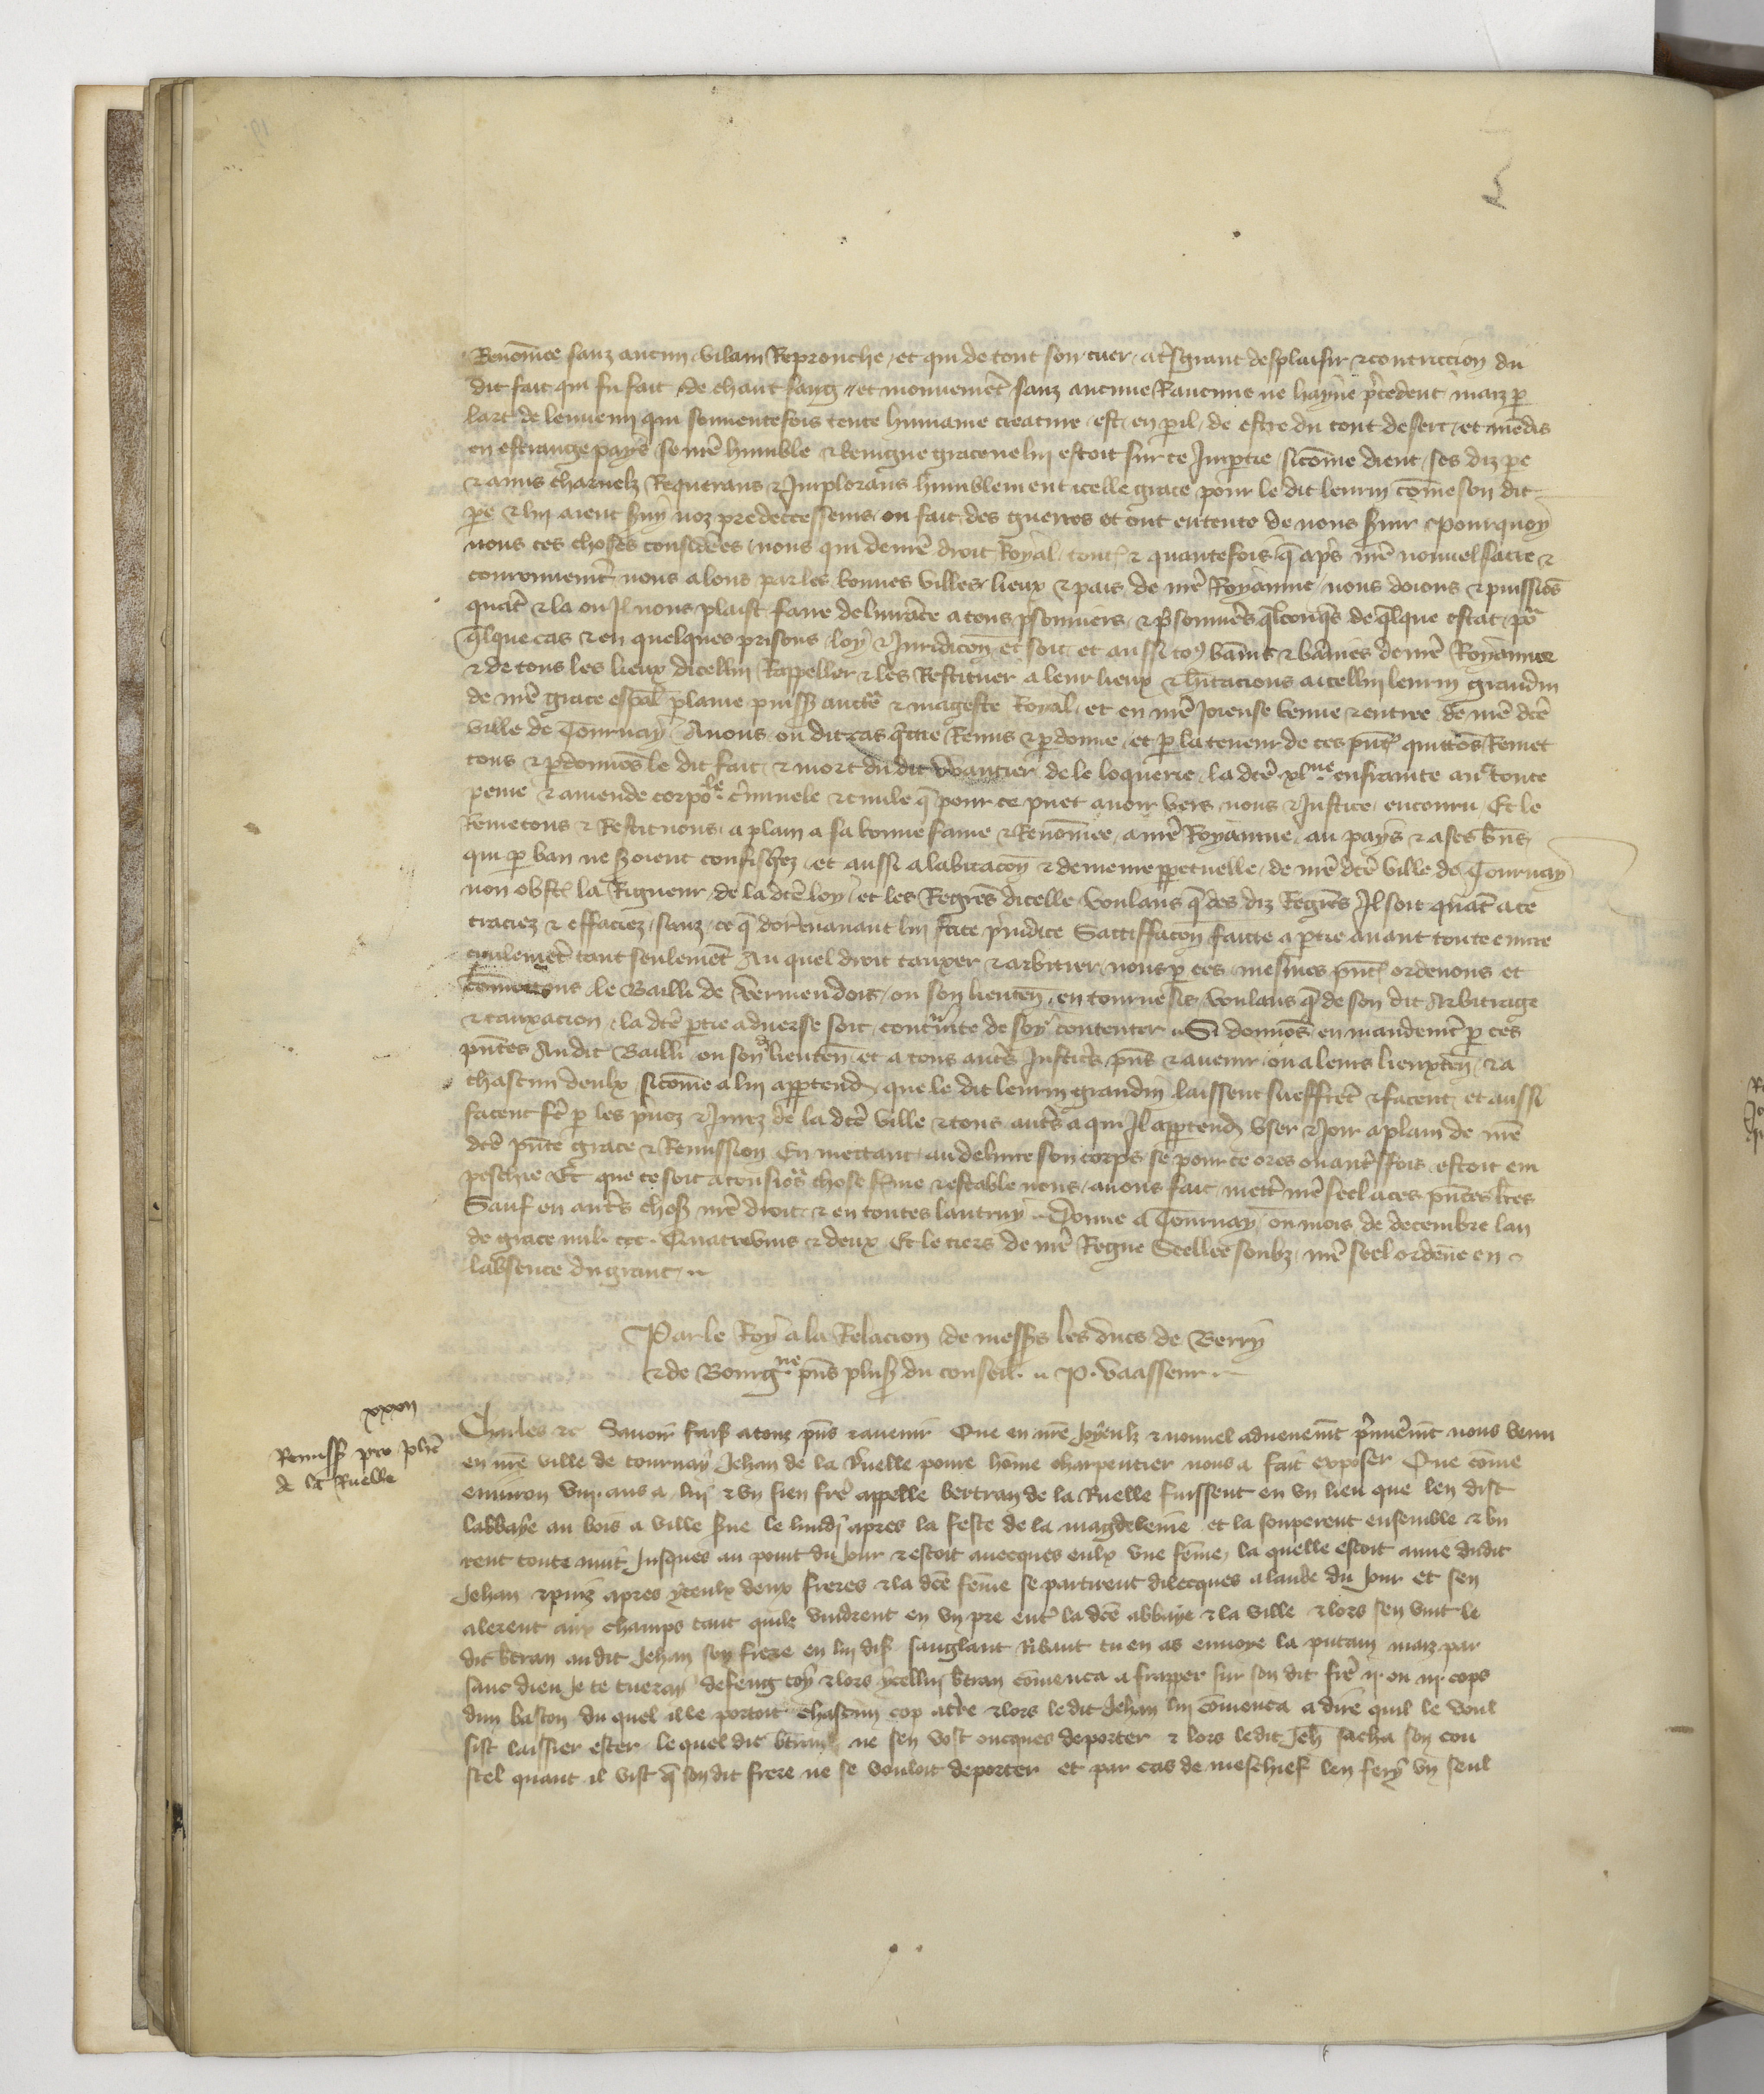 Renōmee sanz aucun vilain Reprouche et qui de tout son cuer a tsgrant desplaisir et contriccion du
dit fait qui fu fait de chaut sang et mouuemēt sanz aucune Rancune ne hayne p̄cedent maiz p
lart de lennemi qui souuentefois tente humaine creature est en pil de estre du tout desert et mēdis
en estrange pays se nr̄e humble et benigne grace ne lui estoit sur ce Impartie sicōme dient ses diz pe
et amis charnelz Requerans et Implorans humblement icelle grace pour le dit leurin cōme son dit
pe et lui aient suy noz predecesseurs ou fait des guerres et ont entente de nous suir Pourquoy
nous ces choses considees nous qui de nr̄e droit Royal tout et quantefois q̄ aps nr̄e nouuel sacre et
couronnemēt nous alons par les bonnes villes lieux et pais de nr̄e Royaume nous doions et puissiōs
quāt et la ou Il nous plaist faire deliurāce a tous psonniers et psonnieres qlconqs de qlque estat por
qlque cas et en quelques prisons loy et Juridicōn et soit et aussi to9 bānis et bānies de nr̄e Royaume
et de tous les lieux dicellui Rappeller et les Restituer a leur lieux et hītacions a icellui leurin grandin
de nr̄e grace espāl plaine puissāce auctē et mageste Royal et en nr̄e Joieuse venue et entree de nr̄e dc̄e
ville de Tournay Auons ou dit cas qctie Remis et pdonne et p la teneur de ces pn̄t quittōs Remet
tons et pdonnōs le dit fait et mort du dit Wantier de le loquerie la dc̄e xlme ensiuante auec toute
peine et amende corporele criminele et ciuile q̄ pour ce puet auoir vers nous et Justice encouru Et le
Remetons et Restituons a plain a sa bonne fame et Renōmee a nr̄e Royaume au pays et a ses bn̄s
qui p ban ne soient confisqez et aussi a labitacōn et demeure ppetuelle de nr̄e dc̄e ville de Tournay
non obstt la Rigueur de la dc̄e loy et les Regrēs dicelle Voulans q̄ des diz Regrēs Il soit quāt a ce
traciez et effaciez sanz ce q̄ dorenauant lui face p̄iudice Sattiffacōn faicte a ptie auant toute euure
ciuilemēt tant seulemēt Au quel droit tauxer et arbitrer nous p ces mesmes pn̄t ordenons et
Cōmettons le Bailli de Vermendois ou son lieuten̄ en tournesis voulans q̄ de son dit Arbitrage
et tauxacion la dc̄e ptie aduerse soit contrainte de soy contenter Si donnōs en mandemēt p ces
pn̄tes Au dit Bailli ou son lieuten̄ et a tous autrēs Justicrs pn̄s et auenir ou a leurs lieuxten̄ et a
chascun deulx sicōme a lui apptend que le dit leurin grandin laissent et seuffrēt et facent et aussi
facent fe p les puoz et Jurez de la dc̄e ville et tous autrēs a qui Il apptend vser et Joir a plain de nr̄e
dc̄e pn̄te grace et Remission En mettant au deliure son corps se pour ce ores ou autrēsfois estoit em
peschie Et que ce soit a tousiors chose ferme et estable nous auons fait mettre nr̄e seel a ces pn̄tes lr̄es
Sauf en autrēs choses nr̄e droit et en toutes lautruy Donne a Tournay ou mois de decembre lan
de grace mil ccc Quatrevins et deux Et le tiers de nr̄e Regne Seellee soubz nr̄e seel ordene en
labsence du grant
Par le Roy a la Relacion de mess̄rs les ducs de Berry
et de Bourgne pn̄s plus̄s du conseil P. vaasseur
xxxii
Remiss̄ pro Joh̄e
de la Ruelle
Charles etc Sauoir fais̄ a touz pn̄s et auenir Que en nr̄e Joyeulx et nouuel aduenemēt p̄mieremēt nous venu
en nr̄e ville de tournay Jehan de la Ruelle poure hōme charpentier nous a fait exposer Que cōme
enuiron viij. ans a lui et vn sien fre appelle bertran de la Ruelle fuissent en vn lieu que len dist
labbaye au bois a ville sue le lundi apres la feste de la magdeleine et la souperent ensemble et bu
rent toute nuit Jusques au point du Jour et estoit auecques eulx vne fēme la quelle estoit amie dudit
Jehan et puiz apres yceulx deux freres et la dc̄e fēme se partirent dilecques a laube du Jour et sen
alerent aux champs tant quilz vindrent en vn pre entre la dc̄e abbaye et la ville et lors sen vint le
dit btran au dit Jehan son frere en lui dis̄ sanglant Ribaut tu en as enuoye la putain maiz par
sanc dieu Je te tueray defeng toy et lors ycellui btran cōmenca a frapper sur son dit fre ij. ou iij. cops
dun baston du quel il le portoit chascun cop a t̄re et lors le dit Jehan lui cōmenca a dire quil le voul
sist laissier ester le quel dit btran ne sen volt oncques deporter et lors ledit Jeh̄ sacha son cou
stel quant il vist q̄ son dit frere ne se vouloit deporter et par cas de meschief len fery vn seul